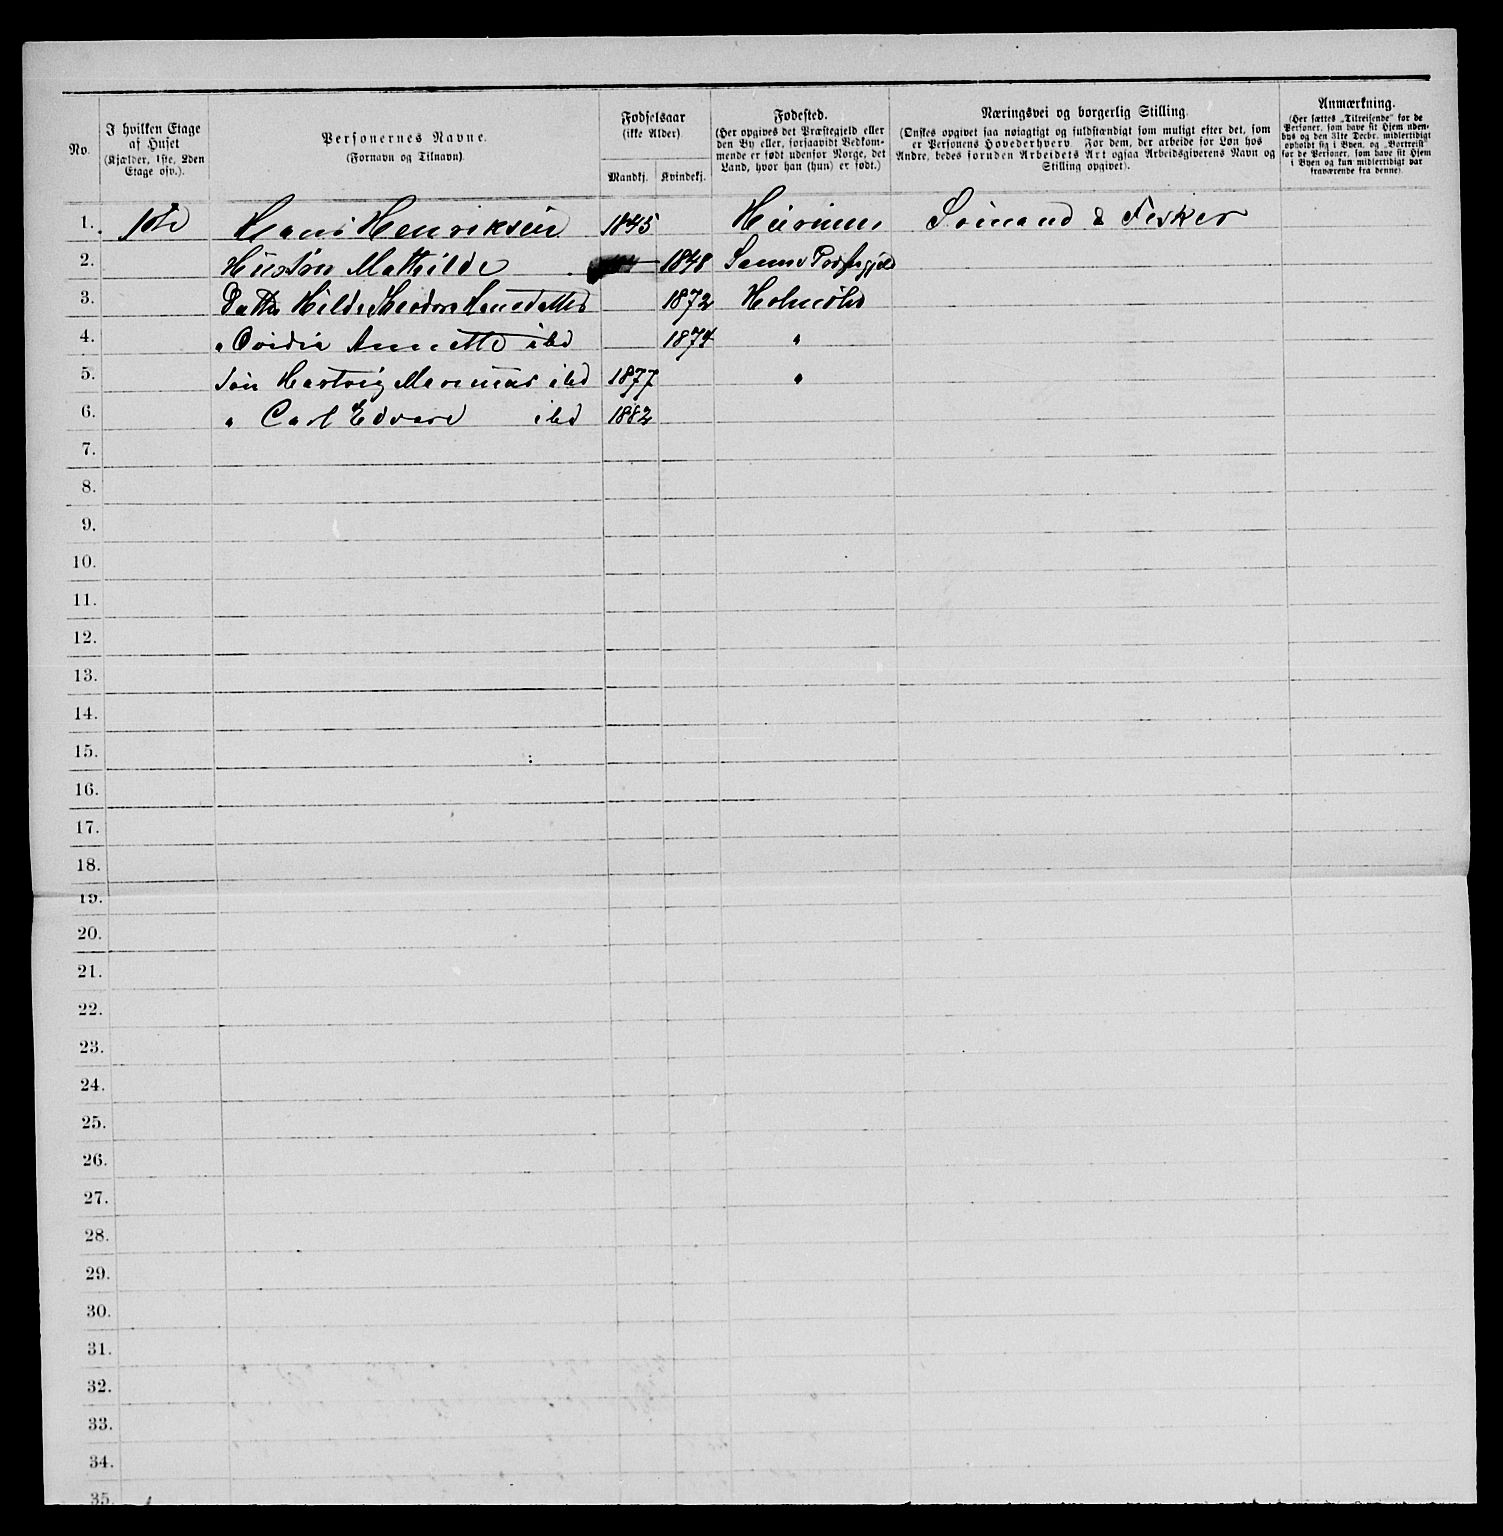 No.
I hvilken Etage
af Huset
(Kjælder, 1ste, 2den
Etage osv.).
Personernes Navne.
(Fornavn og Tilnavn).
Fødselsaar
(ikke Alder).
Mandkj.
Kvindekj.
Fødested.
(Her opgives det Præstegjeld eller
den By eller, forsaavidt Vedkom-
mende er født udenfor Norge, det
Land, hvor han (hun) er født.)
Næringsvei og borgerlig Stilling.
(Ønskes opgivet saa nøiagtigt og fuldstændigt som muligt efter det, som
er Personens Hovederhverv. For dem, der arbeide for Løn hos
Andre, bedes foruden Arbeidets Art ogsaa Arbeidsgiverens Navn og
Stilling opgivet).
Anmærkning.
(Her sættes „Tilreisende“ for de
Personer, som have sit Hjem uden-
bys og den 31te Decbr. midlertidigt
opholdt sig i Byen, og „Bortreist“
for de Personer, som have sit Hjem
i Byen og kun midlertidigt var
fraværende fra denne).
1. 1ste Hans Henriksen 1845 Hurum Sømand & Fisker
2. Hustru Mathilde 1848 Samme Præstegjeld
3. Datter Hilda Hansdatter 1872 Holmsbo
4. " Annette ibd 1874 "
5. Søn Hartvig Marinius ibd 1877 "
6. " Carl Edvard ibd 1882
7.
8.
9.
10.
11.
12.
13.
14.
15.
16.
17.
18.
19.
20.
21.
22.
23.
24.
25.
26.
27.
28.
29.
30.
31.
32.
33.
34.
35.